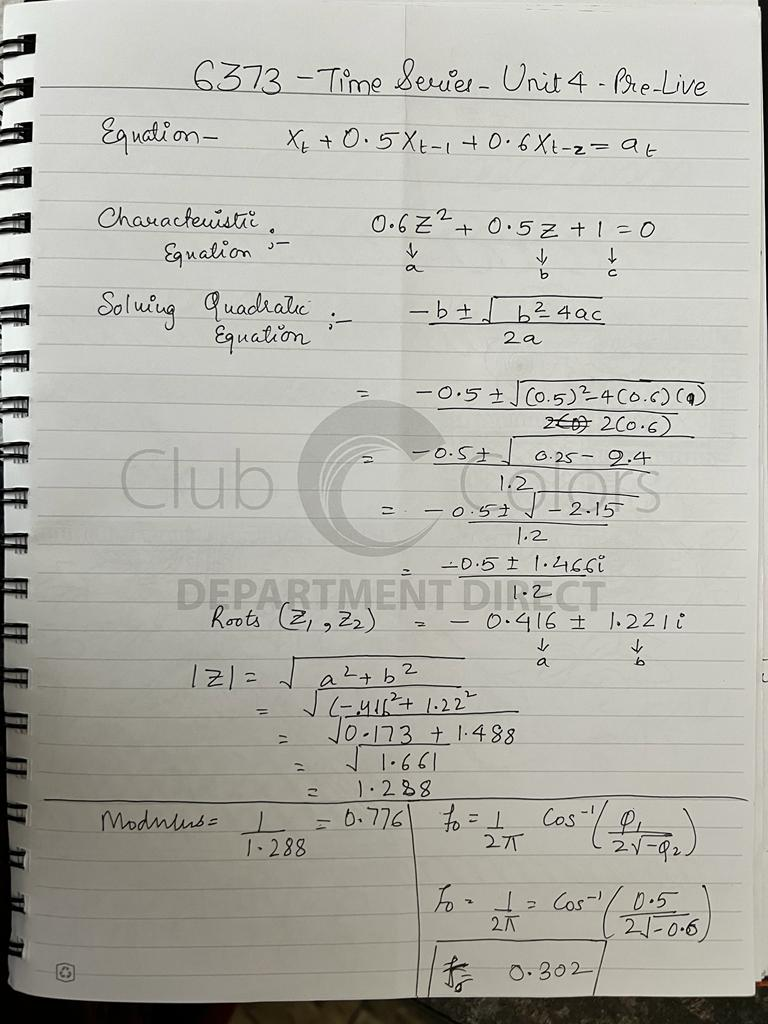 6373 - Time Series - Unit 4 - Pre-Live
Equation - Xₜ + 0.5Xₜ₋₁ + 0.6Xₜ₋₂ = aₜ
Characteristic Equation :- 0.6Z² + 0.5Z + 1 = 0
↓ a ↓ b ↓ c
Solving Quadratic Equation :- -b ± √(b² 4ac) / 2a
= -0.5 ± √((0.5)² - 4(0.6)(1)) / 2(0.6)
= -0.5 ± √(0.25 - 2.4) / 1.2
= -0.5 ± √(-2.15) / 1.2
= -0.5 ± 1.466i / 1.2
Roots (Z₁, Z₂) = -0.416 ± 1.221i
↓ a ↓ b
|Z| = √(a² + b²)
= √((-.416² + 1.22²
= √(0.173 + 1.488)
= √1.661
= 1.288
Modulus = 1 / 1.288 = 0.776
f₀ = 1/2π Cos⁻¹(φ₁ / 2√-φ₂)
f₀ = 1/2π = Cos⁻¹(0.5 / 2√-0.6)
f₀ = 0.302
Club Colors
DEPARTMENT DIRECT